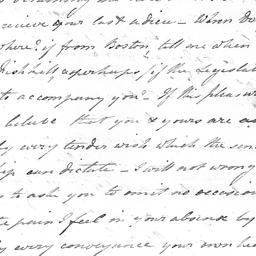 receive your last advice - When do
where? if from Boston, tell me when
Fishkill & perhaps, if the Legislat
to accompany you - If this pleasure
believe that you & yours are as
by every tender wish which the sin
ship can dictate - I will not wrong
to ask you to omit no occasion
te pain I feel in your absence by
by every conveyance your own he